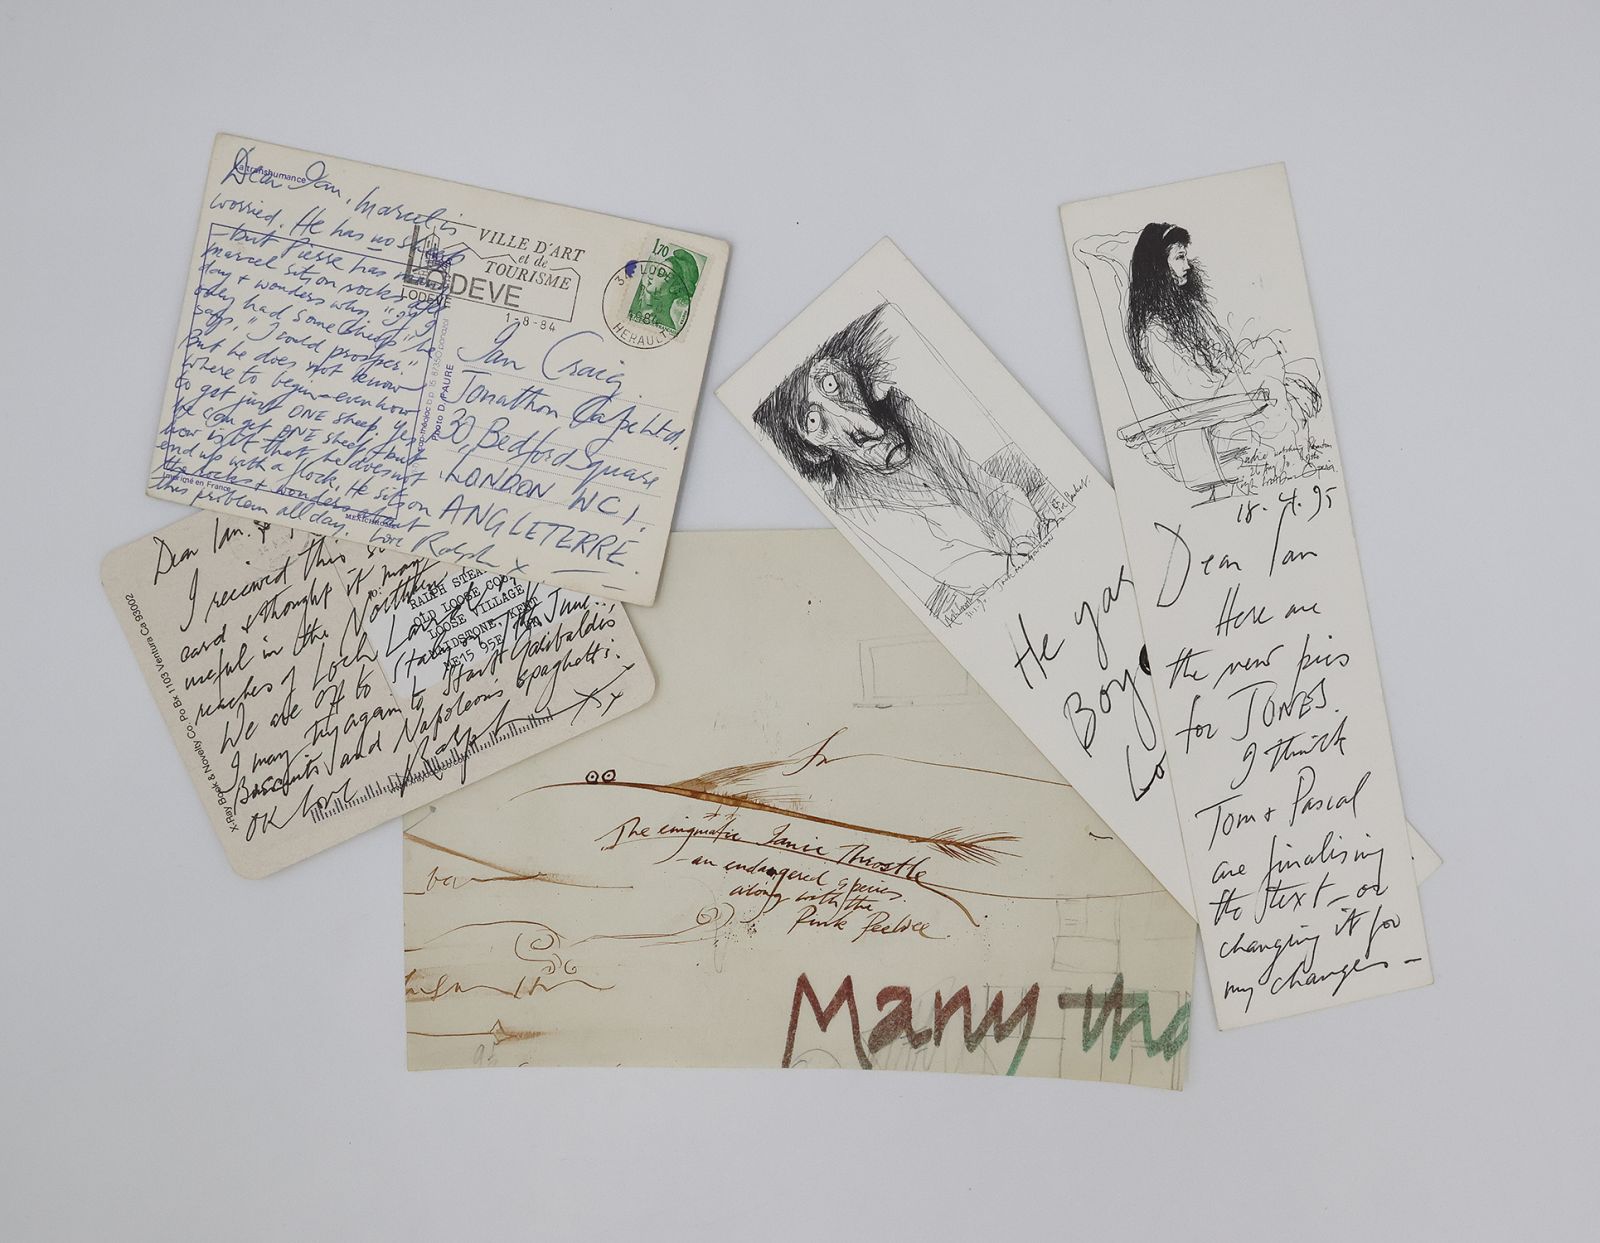 la transhumance
Dear Ian, Marcel is
worried. He has no sheep
- but Pierre has many
Marcel sits on rocks all
day + wonders why. "If I
only had some sheep" he
says, "I could prosper."
But he does not know
where to begin - even how
to get just ONE sheep. Yes,
he can get ONE sheep, but
how is it that he does not
end up with a flock. He sits on
the rocks + wonders about
this problem all day.
Love Ralph x
Imprimé en France
MEXICHROME
Photo D. FAURE
VILLE D'ART
et de
TOURISME
LODEVE
LODEVE
1-8-84
1,70
34 LODEVE
1984
HERAULT
Ian Craig
Jonathon Cape Ltd.
30, Bedford Square
LONDON WC1.
ANGLETERRE.
Dear Ian.
I received this
card & thought it may
useful in the Northern
reaches of Loch
We are off to
I may try again to start Garibaldis
Biscuits and Napoleons Spaghetti.
OK love Ralph xx
RALPH STEA
OLD LOOSE COU
LOOSE VILLAGE
MAIDSTONE, KENT
ME15 9
X-Ray Book & Novelty Co. Po Bx 1103 Ventura Ca 93002
The enigmatic Janic Throstle
- an endangered species
along with the
Pink Peewee.
Many tha
He yar
Boy
Lo
18. 4. 95
Dear Ian
Here are
the new pics
for JONES.
I think
Tom + Pascal
are finalising
the text - or
changing it for
my changes -